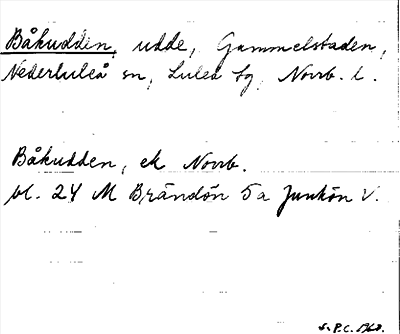 Båkudden, udde, Gammelstaden,
Nederluleå sn, Luleå tg, Norrb. l.
Båkudden, ek Norrb.
bl. 24 M Brändön 5a Junkön V.
S.P.C. 1968.